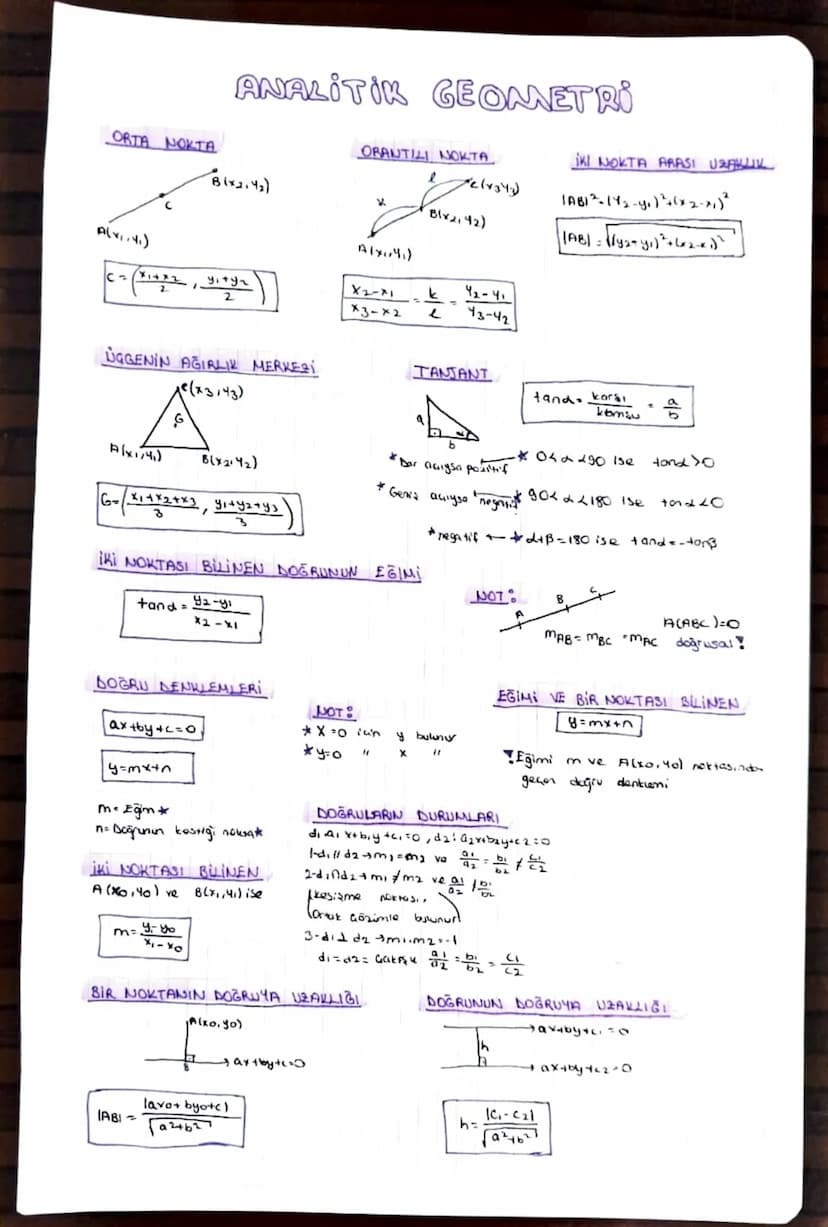 ANALİTİK GEOMETRİ
ORTA NOKTA
B(x2,y2)
C
A(x1,y1)
C = (x1+x2/2 , y1+y2/2)
ORANTILI NOKTA
l
C(x3y3)
k
B(x2,y2)
A(x1,y1)
x2-x1/x3-x2 = k/l = y2-y1/y3-y2
İKİ NOKTA ARASI UZAKLIK
|AB|²=(y2-y1)²+(x2-x1)²
|AB| = √(y2-y1)²+(x2-x1)²
ÜÇGENİN AĞIRLIK MERKEZİ
C(x3,y3)
G
A(x1,y1)
B(x2,y2)
G=(x1+x2+x3/3 , y1+y2+y3/3)
TANJANT
a
b
α
tanα = karşı/komşu = a/b
*Dar açıysa pozitif ← * 0<α<90 ise tanα>0
*Geniş açıysa negatif ← * 90<α<180 ise tanα<0
*negatif ← * α+β=180 ise tanα=-tanβ
İKİ NOKTASI BİLİNEN DOĞRUNUN EĞİMİ
tanα = y2-y1/x2-x1
NOT:
A B C
A(ABC)=0
mAB = mBC = mAC doğrusal!
DOĞRU DENKLEMLERİ
ax+by+c=0
y=mx+n
m = Eğim*
n = Doğrunun kestiği nokta*
NOT:
* X=0 için y bulunur
* y=0 " x "
EĞİMİ VE BİR NOKTASI BİLİNEN
y=mx+n
! Eğimi m ve A(x0,y0) noktasından
geçen doğru denklemi
DOĞRULARIN DURUMLARI
d1 a1x+b1y+c1=0, d2: a2x+b2y+c2=0
1-d1//d2→m1=m2 ve a1/a2 = b1/b2 ≠ c1/c2
2-d1∩d2→m1≠m2 ve a1/a2 ≠ b1/b2
(kesişme noktası,
(ortak çözümle bulunur)
3-d1⊥d2→m1.m2=-1
d1=d2= Çakışık a1/a2 = b1/b2 = c1/c2
İKİ NOKTASI BİLİNEN
A(x0,y0) ve B(x1,y1) ise
m = y1-y0/x1-x0
BİR NOKTANIN DOĞRUYA UZAKLIĞI
A(x0,y0)
B
ax+by+c=0
|AB| = |ax0+by0+c|/√a²+b²
DOĞRUNUN DOĞRUYA UZAKLIĞI
ax+by+c1=0
h
ax+by+c2=0
h = |c1-c2|/√a²+b²